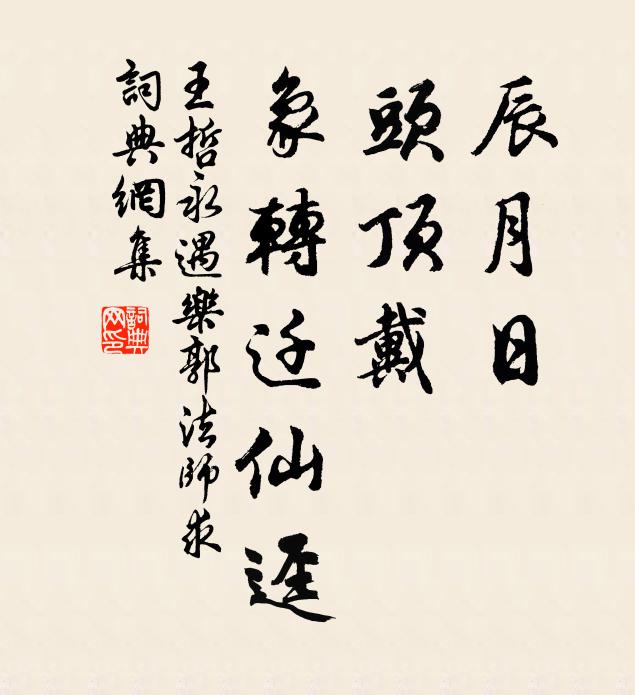 辰月日
頭頂戴
象轉迁仙逕
王哲永遇樂郭法師求
詞典網集
詞典网印